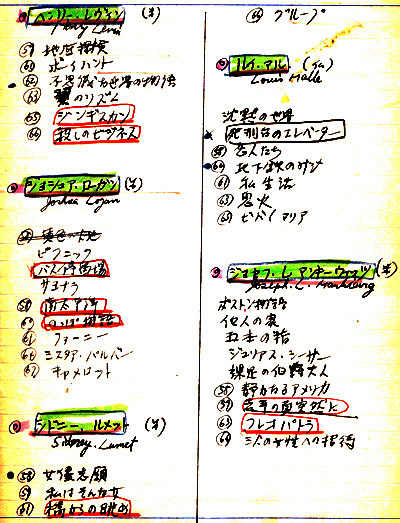 ヘンリー・レヴィン (米)
Henry Levin
59 地底探検
61 ボーイハント
62 不思議な世界の物語
62 翼のリズム
65 ジンギスカン
66 殺しのビジネス
ジョシュア・ローガン (米)
Joshua Logan
ピクニック
バス停留所
サヨナラ
58 南太平洋
60 のっぽ物語
61 ファーニー
66 ミスタア・バルバー
67 キャメロット
シドニー・ルメット (米)
Sidney Lumet
58 女優志願
59 私はそんな女
61 橋からの眺め
66 グループ
ルイ・マル (仏)
Louis Malle
沈黙の世界
死刑台のエレベーター
58 恋人たち
60 地下鉄のザジ
61 私生活
63 鬼火
65 ビバ/マリア
ジョセフ・L・マンキーウィッツ (米)
Joseph. L. Mankiewicz
ボストン物語
他人の家
五本の指
ジュリアス・シーザー
裸足の伯爵夫人
58 静かなるアメリカ
59 去年の夏突然に
63 クレオパトラ
64 三人の女性への招待